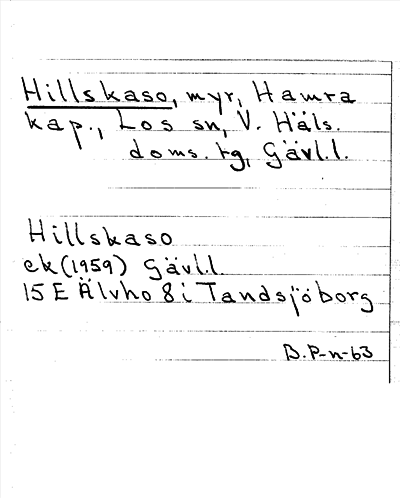 Hillskaso, myr, Hamra
kap., Los sn, V. Häls.
doms. tg, Gävl.l.
Hillskaso
ek (1959) Gävl.l.
15 E Älvho 8 i Tandsjöborg
B. P-n-63